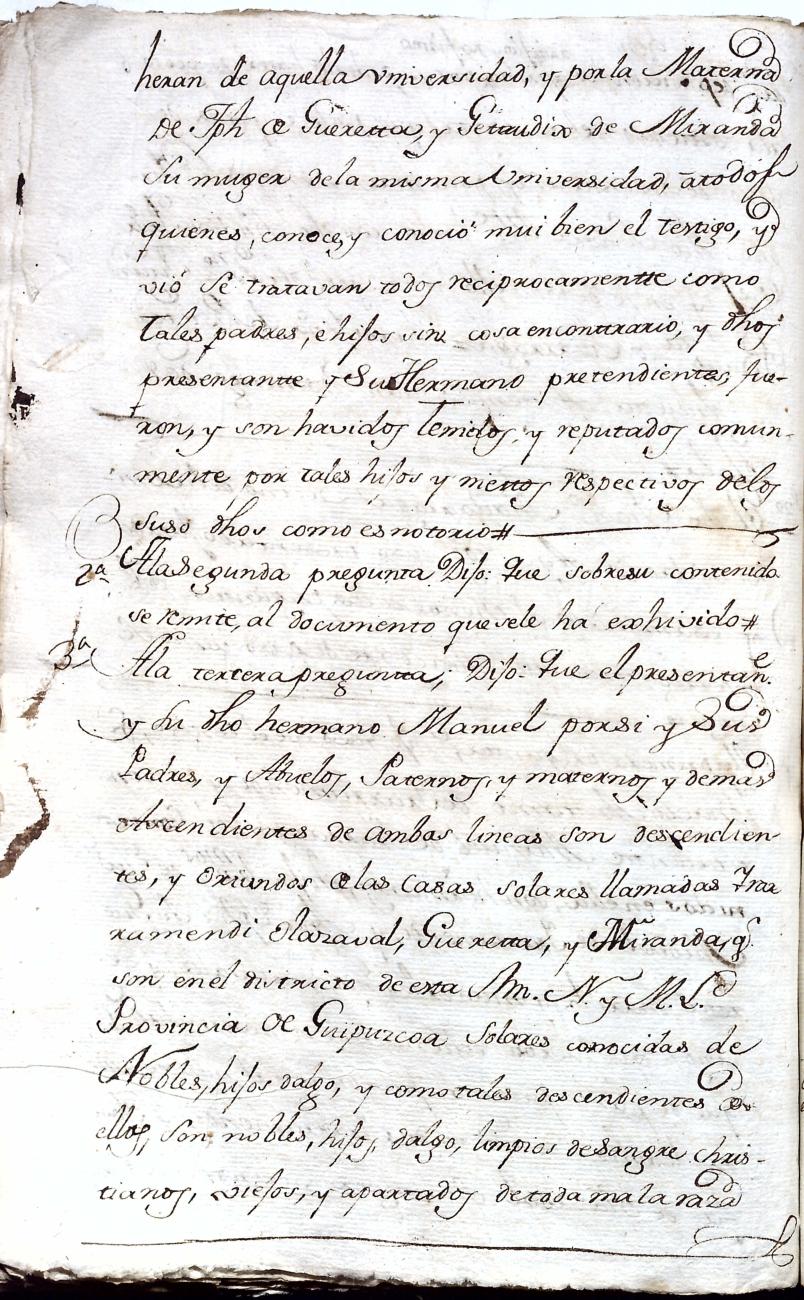 heran de aquella Vniversidad, y por la Materna
De Jph de Gueretta, y Getrudix de Miranda
Su muger de la misma Vniversidad, a todos
quienes, conoce, y conoció mui bien el testigo, y
vió se tratavan todos reciprocamentte como
tales padres, e hijos sin cosa en conttrario, y dhos
presentantte y Su Hermano pretendientes, fue-
ron, y son havidos tenidos, y reputados comun-
mente por tales hijos y niettos respectivos de los
suso dhos como es notorio#
2ª A la Segunda pregunta Dijo: Que sobre su contenido
se remite, al documento que se le há exhivido#
3ª A la tertera preguntta; Dijo: Que el presentan.e
y Su dho hermano Manuel por si y Sus
Padres, y Abuelos, Paternos, y maternos y demas
Ascendientes de ambas lineas son descendien-
tes, y Oriundos de las Casas solares llamadas Yrar
ramendi Olazaval, Gueretta, y Miranda, q.e
son en el districto de esta M. N. y M. L.
Provincia de Guipuzcoa Solares conocidas de
Nobles, hijos dalgo, y como tales descendientes de
ellos, son nobles, hijos, dalgo, limpios de Sangre chris-
tianos, viejos, y apartados de toda mala raza